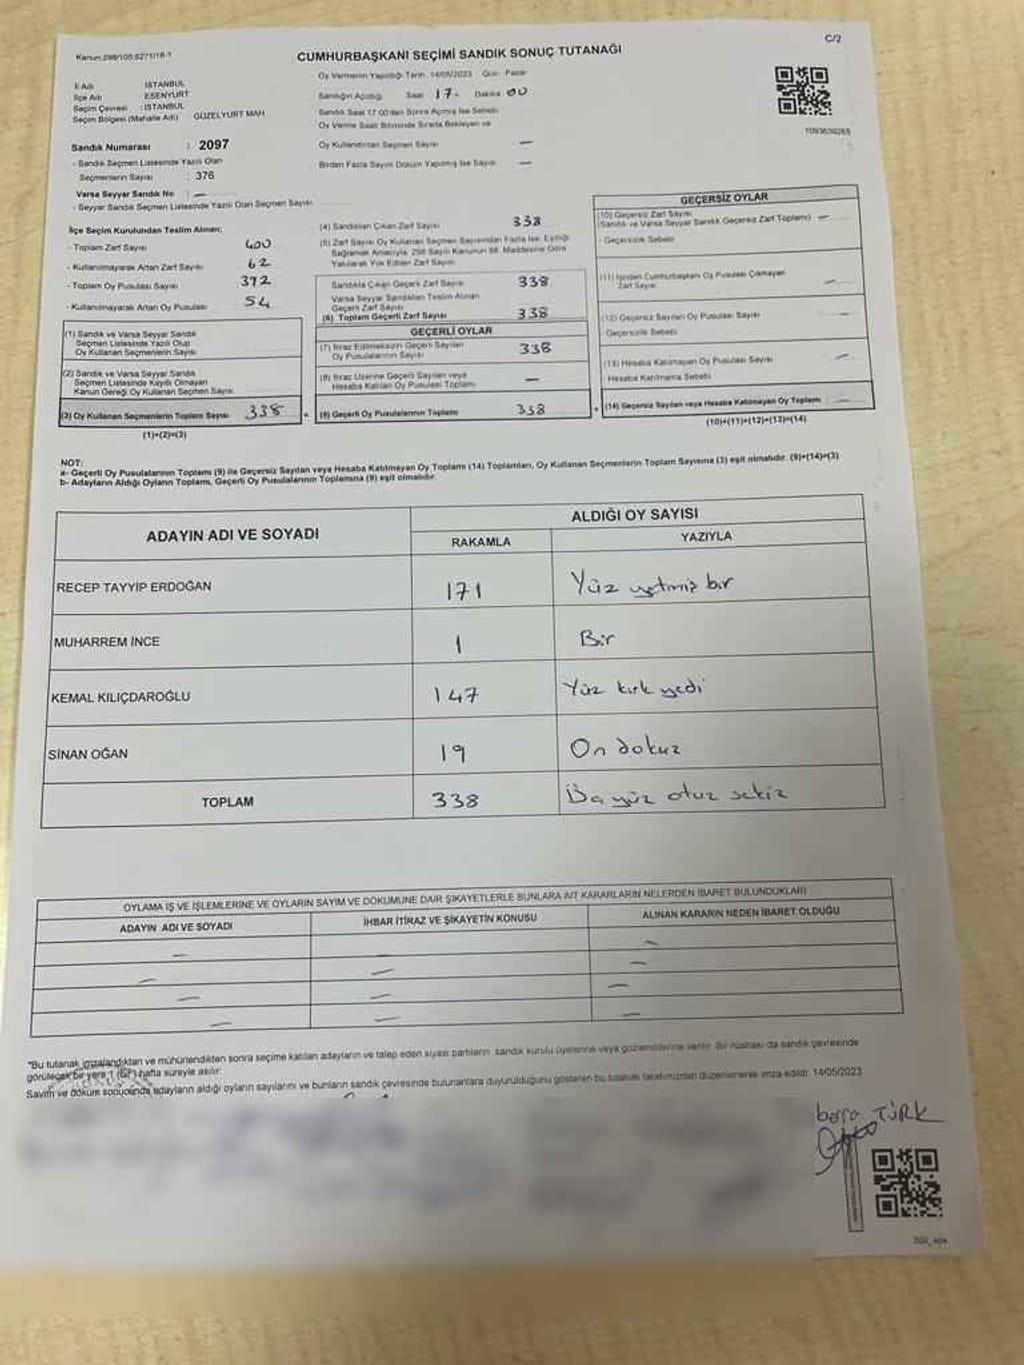 Kanun:298/105,6271/18-1
CUMHURBAŞKANI SEÇİMİ SANDIK SONUÇ TUTANAĞI
C/2
İl Adı : İSTANBUL
İlçe Adı : ESENYURT
Seçim Çevresi : İSTANBUL
Seçim Bölgesi (Mahalle Adı) : GÜZELYURT MAH
Sandık Numarası : 2097
- Sandık Seçmen Listesinde Yazılı Olan
Seçmenlerin Sayısı : 376
Varsa Seyyar Sandık No : —
- Seyyar Sandık Seçmen Listesinde Yazılı Olan Seçmen Sayısı
Oy Vermenin Yapıldığı Tarih: 14/05/2023 Gün: Pazar
Sandığın Açıldığı Saat 17- Dakika 00
Sandık Saat 17.00'den Sonra Açılmış İse Sebebi
Oy Verme Saati Bitiminde Sırada Bekleyen ve
Oy Kullandırılan Seçmen Sayısı —
Birden Fazla Sayım Döküm Yapılmış İse Sayısı —
İlçe Seçim Kurulundan Teslim Alınan;
- Toplam Zarf Sayısı 400
- Kullanılmayarak Artan Zarf Sayısı 62
- Toplam Oy Pusulası Sayısı 392
- Kullanılmayarak Artan Oy Pusulası 54
(1) Sandık ve Varsa Seyyar Sandık
Seçmen Listesinde Yazılı Olup
Oy Kullanan Seçmenlerin Sayısı
(2) Sandık ve Varsa Seyyar Sandık
Seçmen Listesinde Kayıtlı Olmayan
Kanun Gereği Oy Kullanan Seçmen Sayısı
(3) Oy Kullanan Seçmenlerin Toplam Sayısı 338
(1)+(2)=(3)
(4) Sandıktan Çıkan Zarf Sayısı 338
(5) Zarf Sayısı Oy Kullanan Seçmen Sayısından Fazla İse, Eşitliği
Sağlamak Amacıyla, 298 Sayılı Kanunun 98. Maddesine Göre
Yakılarak Yok Edilen Zarf Sayısı
Sandıkta Çıkan Geçerli Zarf Sayısı 338
Varsa Seyyar Sandıktan Teslim Alınan
Geçerli Zarf Sayısı
(6) Toplam Geçerli Zarf Sayısı 338
GEÇERLİ OYLAR
(7) İtiraz Edilmeksizin Geçerli Sayılan
Oy Pusulalarının Sayısı 338
(8) İtiraz Üzerine Geçerli Sayılan veya
Hesaba Katılan Oy Pusulası Toplamı —
(9) Geçerli Oy Pusulalarının Toplamı 338
GEÇERSİZ OYLAR
(10) Geçersiz Zarf Sayısı
(Sandık ve Varsa Seyyar Sandık Geçersiz Zarf Toplamı) —
- Geçersizlik Sebebi
(11) İçinden Cumhurbaşkanı Oy Pusulası Çıkmayan
Zarf Sayısı —
(12) Geçersiz Sayılan Oy Pusulası Sayısı —
Geçersizlik Sebebi
(13) Hesaba Katılmayan Oy Pusulası Sayısı —
Hesaba Katılmama Sebebi
(14) Geçersiz Sayılan veya Hesaba Katılmayan Oy Toplamı —
(10)+(11)+(12)+(13)=(14)
NOT:
a- Geçerli Oy Pusulalarının Toplamı (9) ile Geçersiz Sayılan veya Hesaba Katılmayan Oy Toplamı (14) Toplamları, Oy Kullanan Seçmenlerin Toplam Sayısına (3) eşit olmalıdır. (9)+(14)=(3)
b- Adayların Aldığı Oyların Toplamı, Geçerli Oy Pusulalarının Toplamına (9) eşit olmalıdır.
ADAYIN ADI VE SOYADI
ALDIĞI OY SAYISI
RAKAMLA YAZIYLA
RECEP TAYYİP ERDOĞAN 171 Yüz yetmiş bir
MUHARREM İNCE 1 Bir
KEMAL KILIÇDAROĞLU 147 Yüz kırk yedi
SİNAN OĞAN 19 On dokuz
TOPLAM 338 Üç yüz otuz sekiz
OYLAMA İŞ VE İŞLEMLERİNE VE OYLARIN SAYIM VE DÖKÜMÜNE DAİR ŞİKAYETLERLE BUNLARA AİT KARARLARIN NELERDEN İBARET BULUNDUKLARI
ADAYIN ADI VE SOYADI İHBAR İTİRAZ VE ŞİKAYETİN KONUSU ALINAN KARARIN NEDEN İBARET OLDUĞU
— — —
— — —
— — —
— — —
"Bu tutanak imzalandıktan ve mühürlendikten sonra seçime katılan adayların ve talep eden siyasi partilerin sandık kurulu üyelerine veya gözlemcilerine verilir. Bir nüshası da sandık çevresinde
görülecek bir yere 1 (bir) hafta süreyle asılır.
Sayım ve döküm sonucunda adayların aldığı oyların sayılarını ve bunların sandık çevresinde bulunanlara duyurulduğunu gösteren bu tutanak tarafımızdan düzenlenerek imza edildi. 14/05/2023
TÜRK